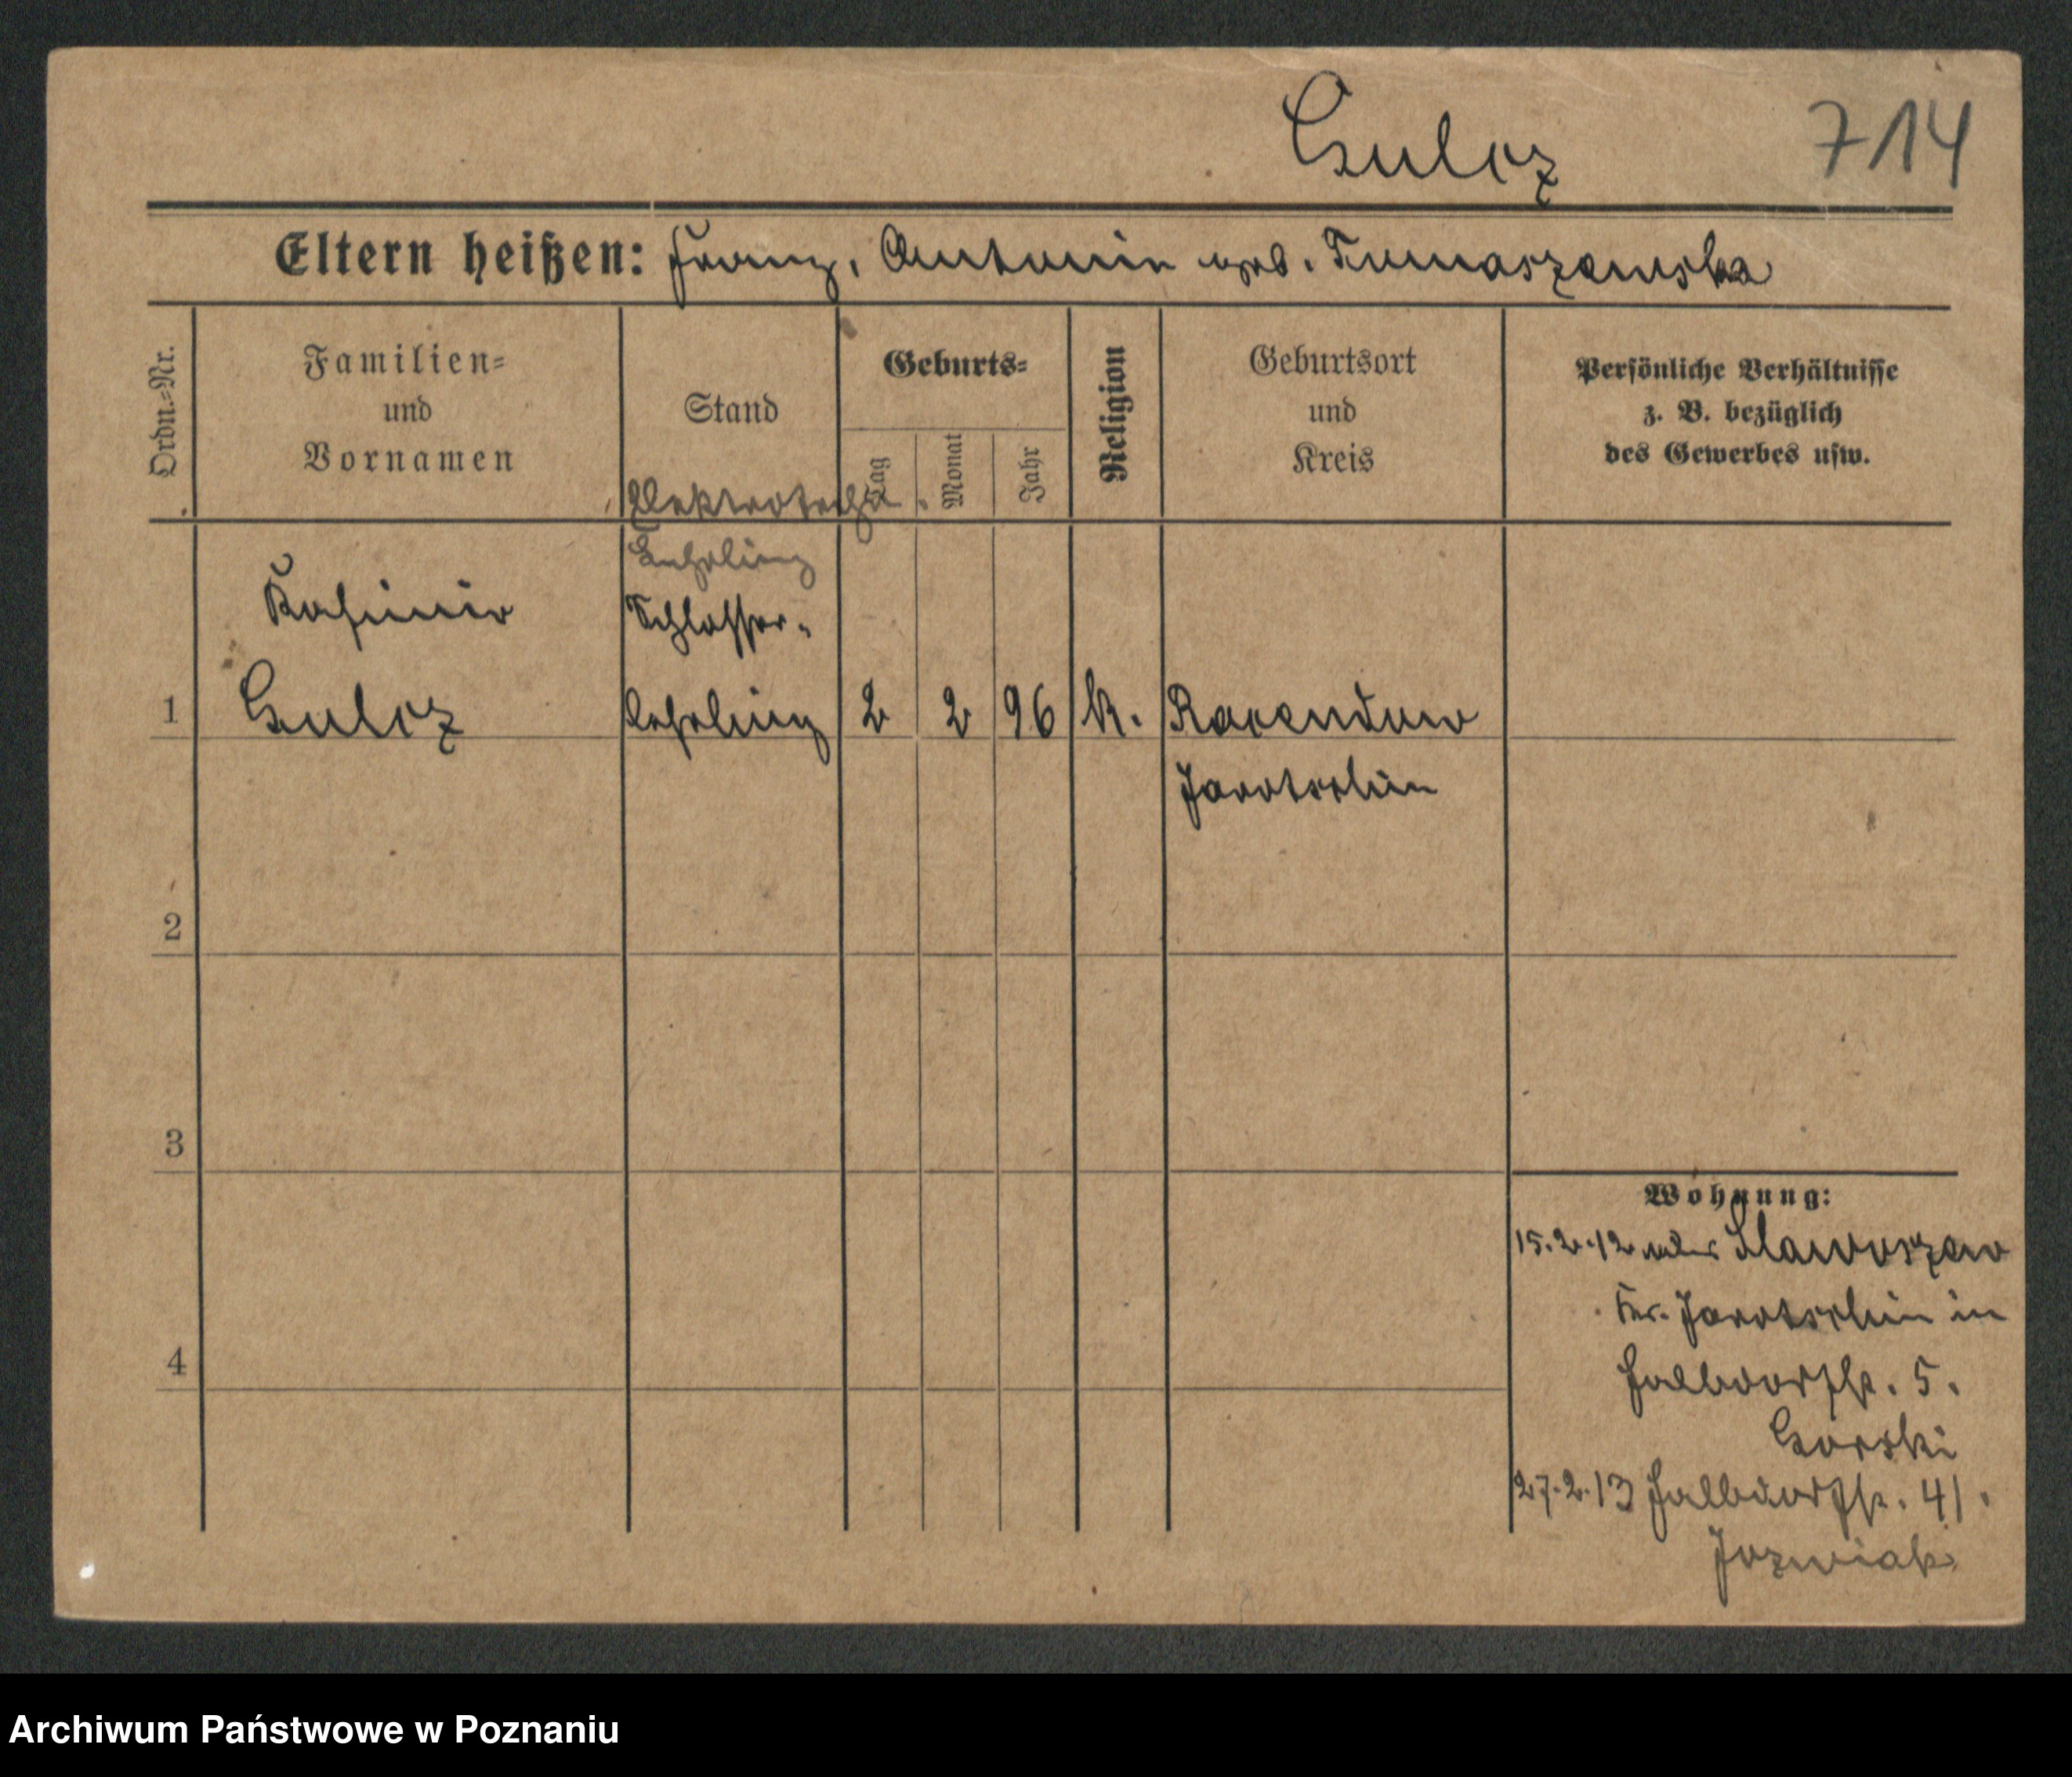 Gulcz 714
Eltern heißen: Franz, Antonin geb. Tomaszewska
Ordn.-Nr.
Familien-
und
Vornamen
Stand
Geburts-
Tag
Monat
Jahr
Religion
Geburtsort
und
Kreis
Persönliche Verhältnisse
z. B. bezüglich
des Gewerbes usw.
Elektrotech.
Lehrling
Kasimir Schlosser-
1 Gulcz lehrling 2 2 96 k. Racendow
Jarotschin
2
3
4
Wohnung:
15.2.12 Slawoszew
Kr. Jarotschin in
Halbdorfstr. 5.
Gorski
27.2.13 Halbdorfstr. 41.
Jozwiak
Archiwum Państwowe w Poznaniu